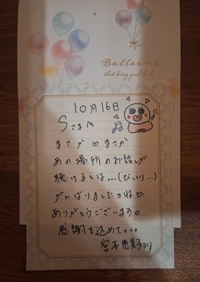 Balloons
that bring good luck
10月16日
Sさま
まさか♡まさか
あの場所のお話しが
聴けるとは…(びっくり…)
がんばりましたね♡
ありがとうございます。
感謝を込めて…
より